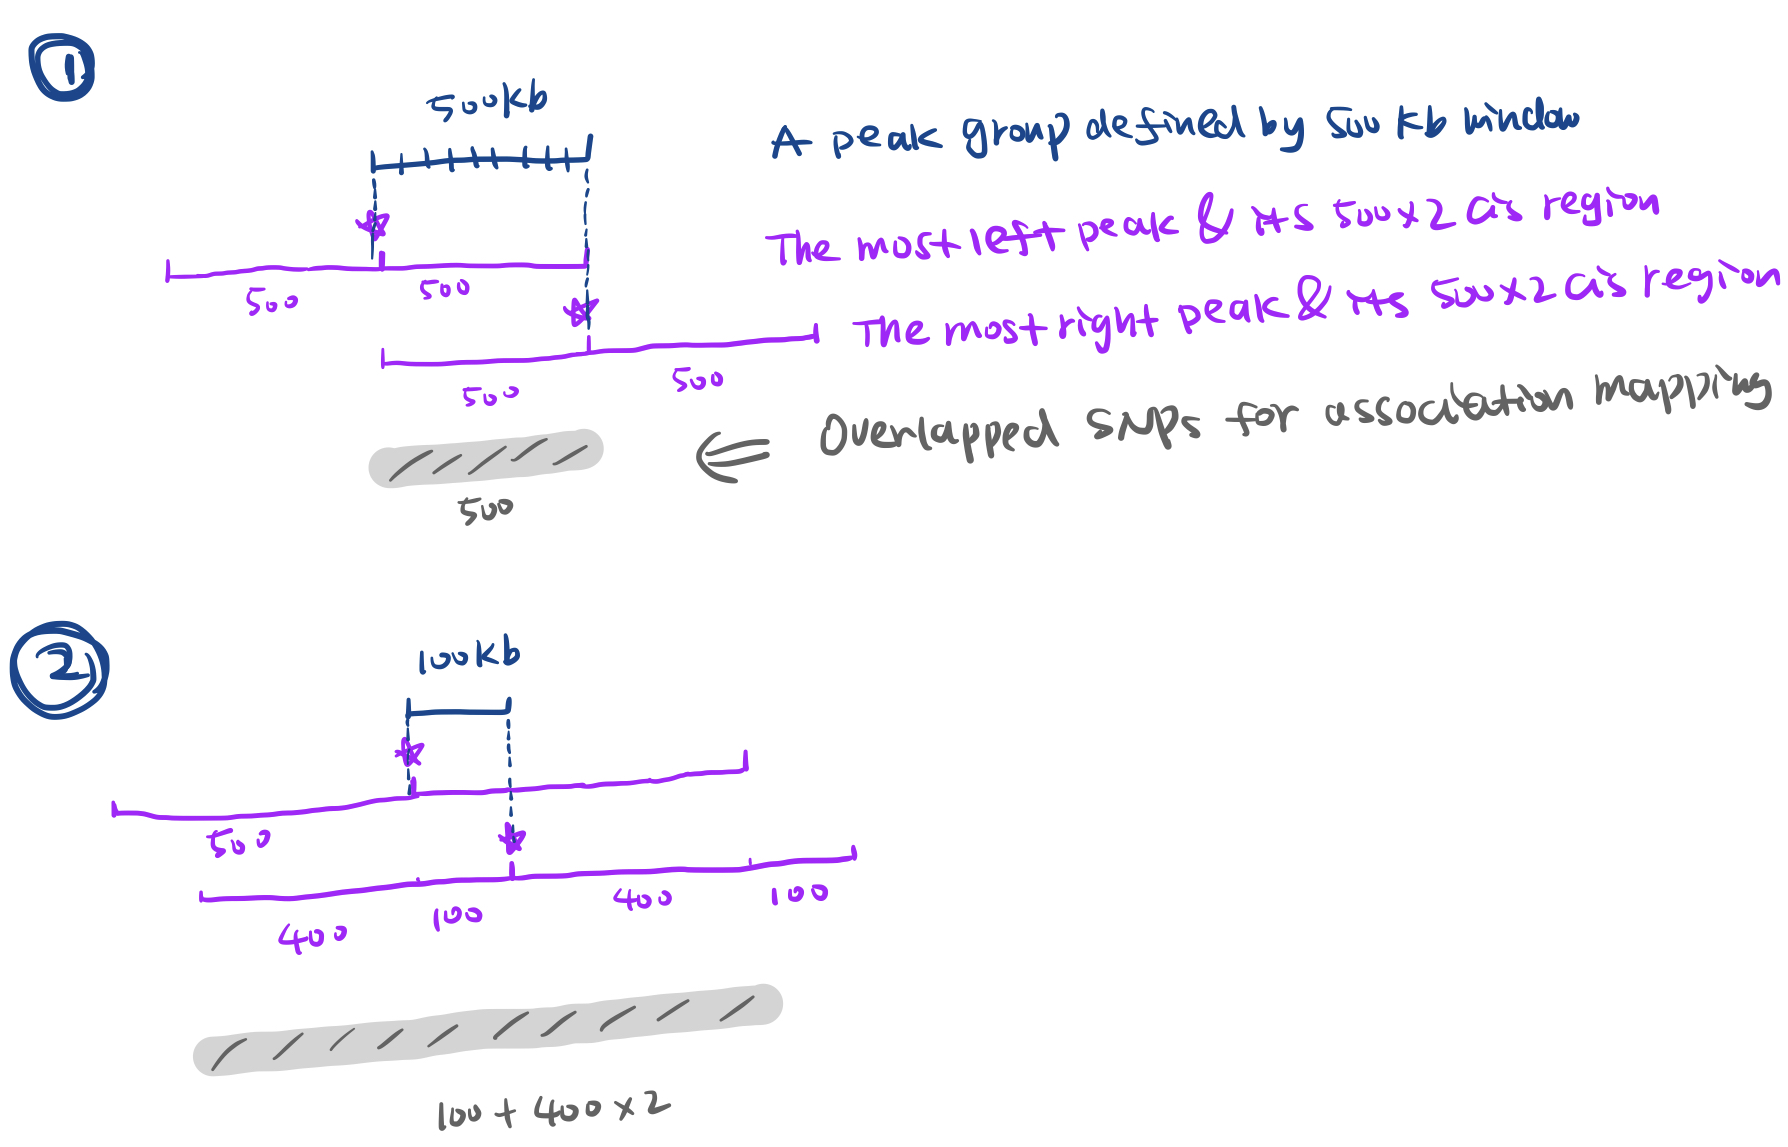 1
500kb
A peak group defined by 500 Kb window
The most left peak & its 500x2 cis region
500
500
The most right peak & its 500x2 cis region
500
500
Overlapped SNPs for association mapping
500
2
100Kb
500
400
100
400
100
100 + 400 x 2